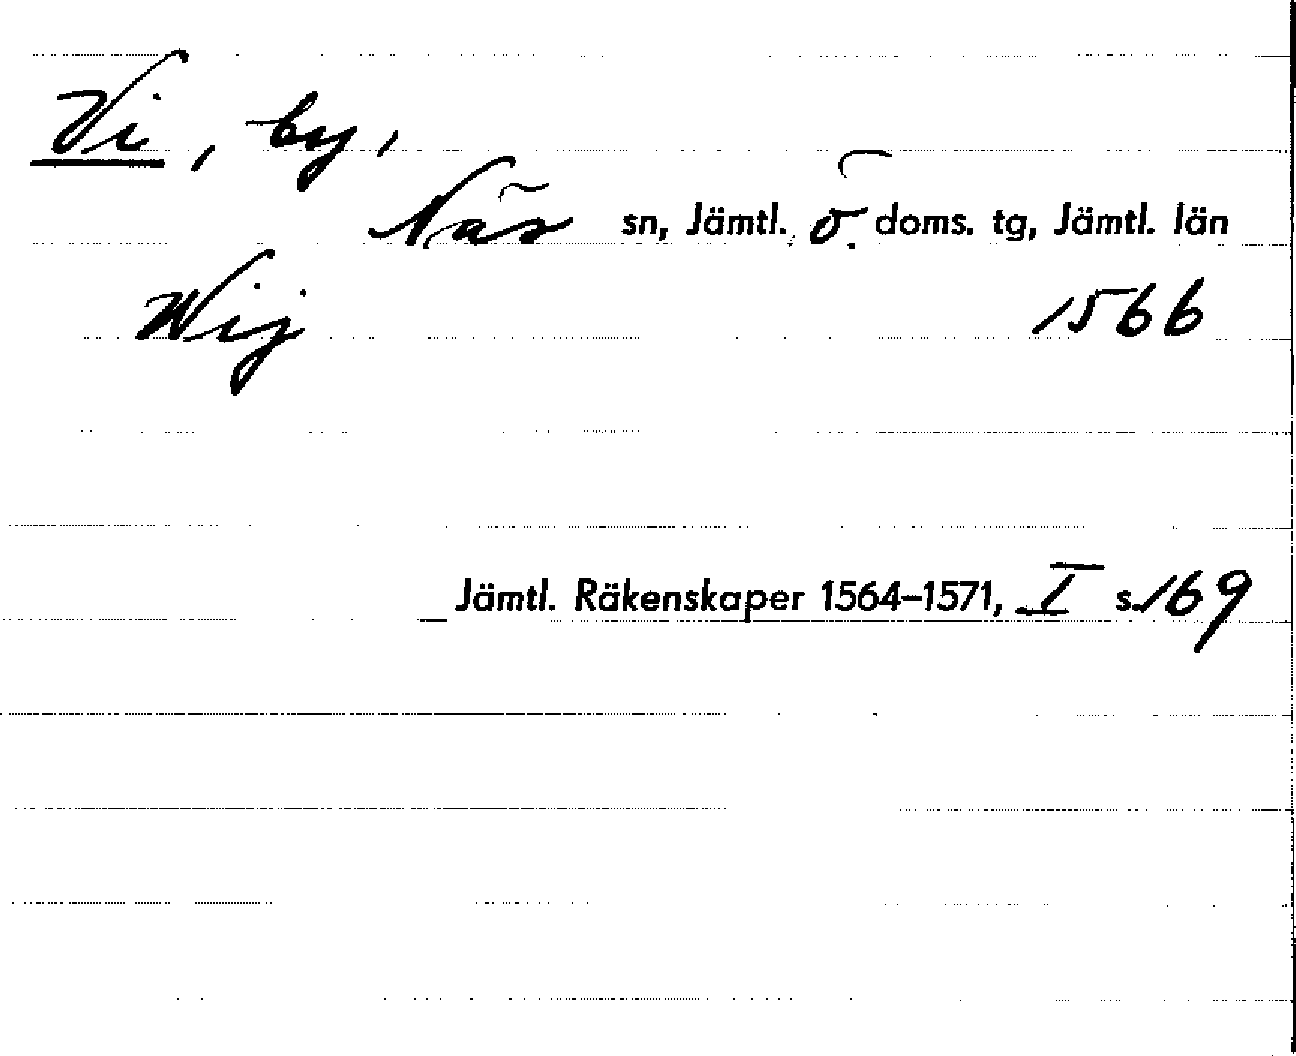 Vi, by,
Näs sn, Jämtl. ö. doms. tg, Jämtl. län
Wij 1566
Jämtl. Räkenskaper 1564–1571, I s. 169